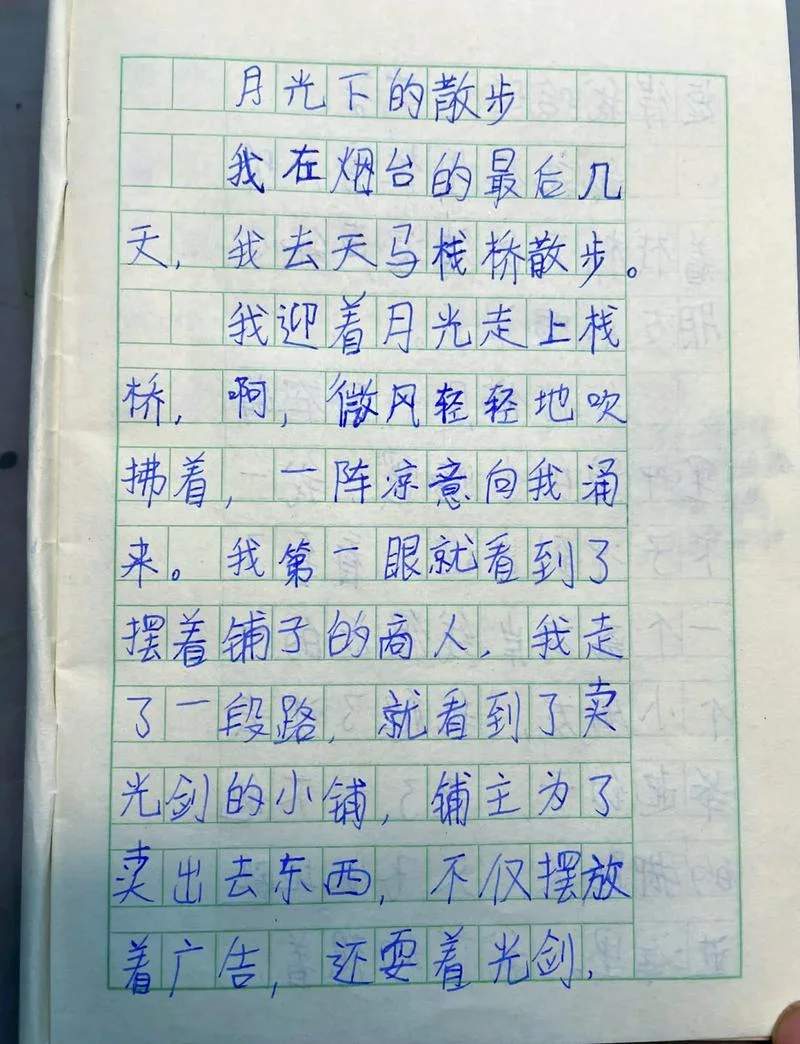 月光下的散步
我在烟台的最后几
天,我去天马栈桥散步。
我迎着月光走上栈
桥,啊,微风轻轻地吹
拂着,一阵凉意向我涌
来。我第一眼就看到了
摆着铺子的商人,我走
了一段路,就看到了卖
光剑的小铺,铺主为了
卖出去东西,不仅摆放
着广告,还耍着光剑,